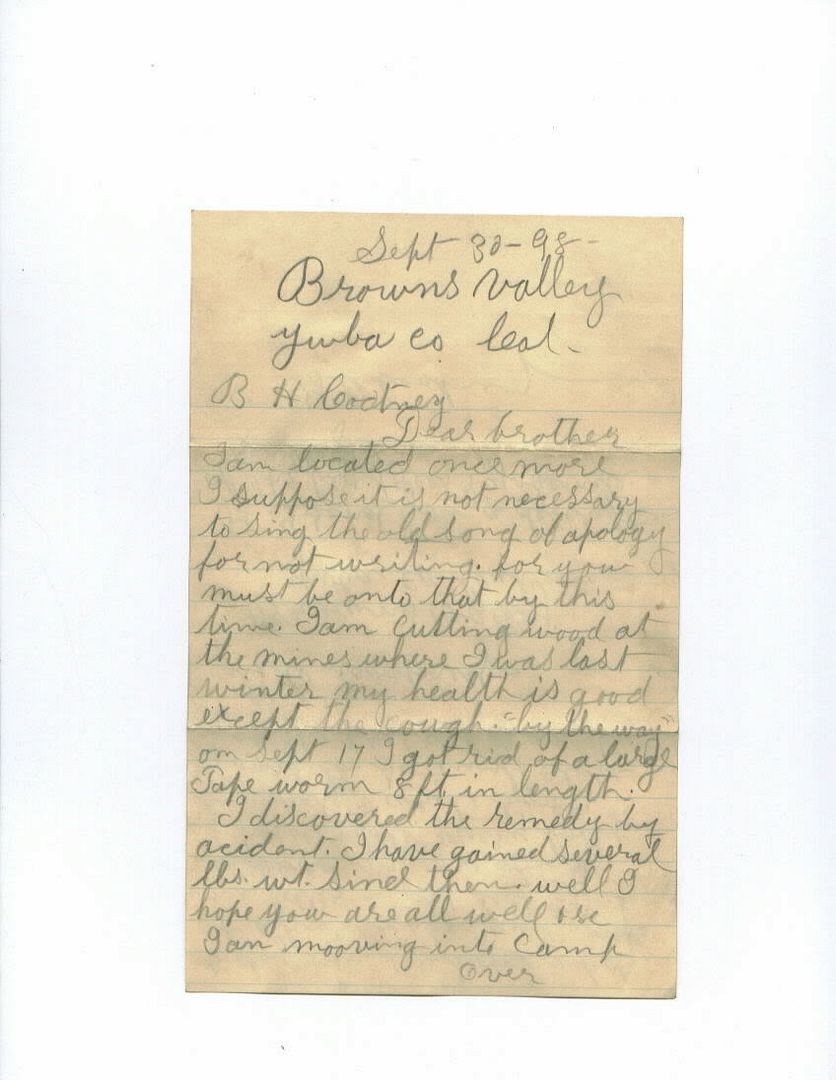 Sept 30-98-
Browns valley
yuba co Cal-
B H Cortney
Dear brother
I am located once more
I suppose it is not necessary
to sing the old song of apology
for not writing. for you
must be onto that by this
time. I am cutting wood at
the mines where I was last
winter my health is good
except the cough. "by the way"
on Sept 17 I got rid of a large
Tape worm 8 ft in length.
I discovered the remedy by
acident. I have gained several
lbs. wt. since then. well I
hope you are all well
I am mooving into Camp
Over